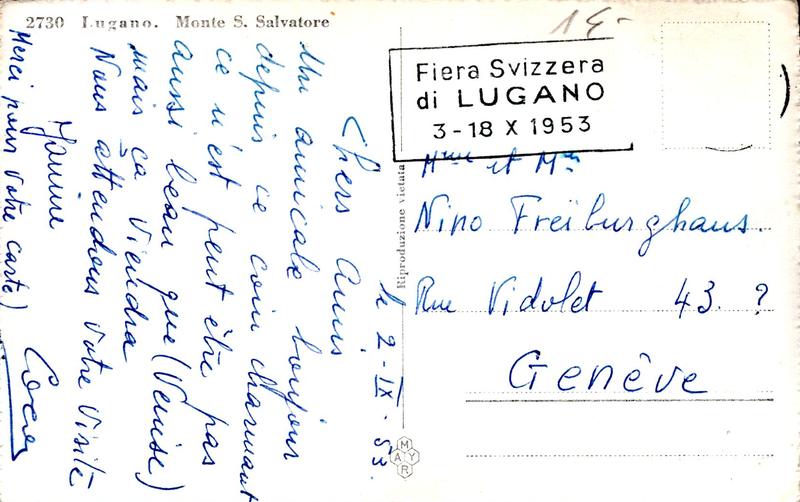 2730 Lugano. Monte S. Salvatore
Chers Amis
Un amicale bonjour
depuis ce coin charmant
ce n'est peut être pas
aussi beau que (Venise)
mais ça viendra
Nous attendons votre visite
Janine Coco
Merci pour votre carte)
le 2-IX-53.
Riproduzione vietata
MAYR
15.-
Fiera Svizzera
di LUGANO
3-18 X 1953
Mme et Mr
Nino Freiburghaus.
Rue Vidolet 43. ?
Genève